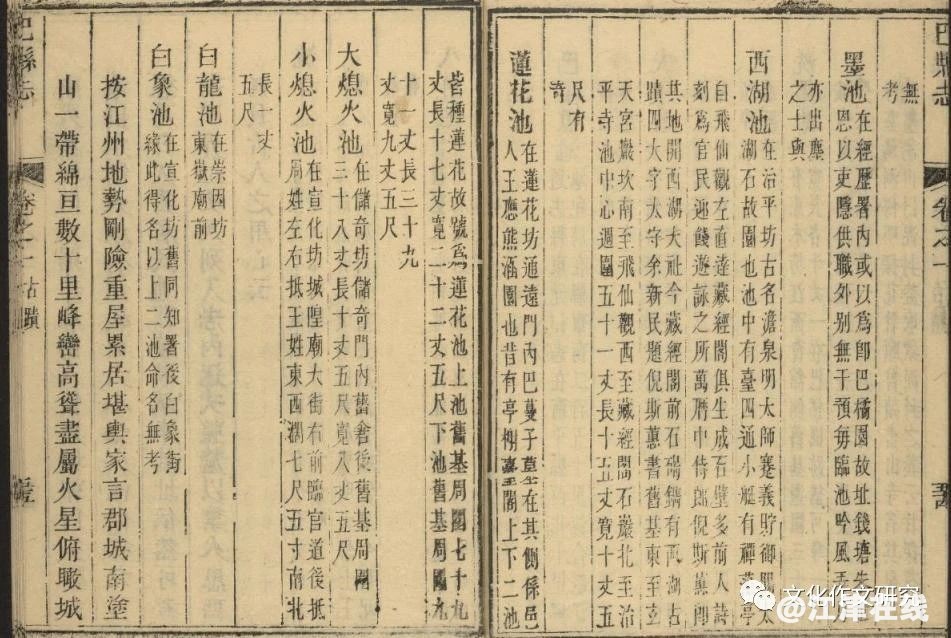 巴縣志
卷之一
無
考
墨池 在經歷署內或以爲卽巴橘園故址錢塘朱
恩以吏隱供職外別無干預每臨池吟風弄
亦出塵
之士與
西湖池 在治平坊古名澹泉明太師蹇義貯御賜太
湖石故園也池中有臺四通小艇有禪燕亭
自飛仙觀 藏經閣俱生成石壁多前人詩
刻爲官民 餞遊詠之所萬曆中侍郎倪斯蕙卽
其地開西湖大社今藏經閣前石 鐫有西湖古
蹟四大字太守余新民題倪斯蕙書舊基東至
天宮巖坎南至飛仙觀西至藏經閣石巖北至治
平寺池中心週圍五十一丈長丈十五丈寬十丈五
尺有
奇
蓮花池 在蓮花坊通遠門內巴蔓子墓在其側係邑
人王應熊涵園也昔有亭榭臺閣上下二池
皆種蓮花故號爲蓮花池上池舊基周圍七十九
丈長十七丈寬二十二丈五尺下池舊基周圍九
十一丈長三十九
丈寬九丈五尺
大熄火池 在儲奇坊儲奇門內舊倉後舊基周圍
三十八丈長十丈五尺寬八丈五尺
小熄火池 在宣化坊城隍廟大街右前臨官道後抵
周姓左右抵王姓東西濶七尺五寸南北
長一丈
五尺
白龍池 在崇因坊
東嶽廟前
白象池 在宣化坊舊同知署後白象街
緣此得名以上二池命名無考
按江州地勢剛險重屋累居堪輿家言郡城南塗
山一帶綿亘數十里峰巒高聳盡屬火星俯瞰城
巴縣志
卷之一 古蹟
文化作文研究
@江津在线